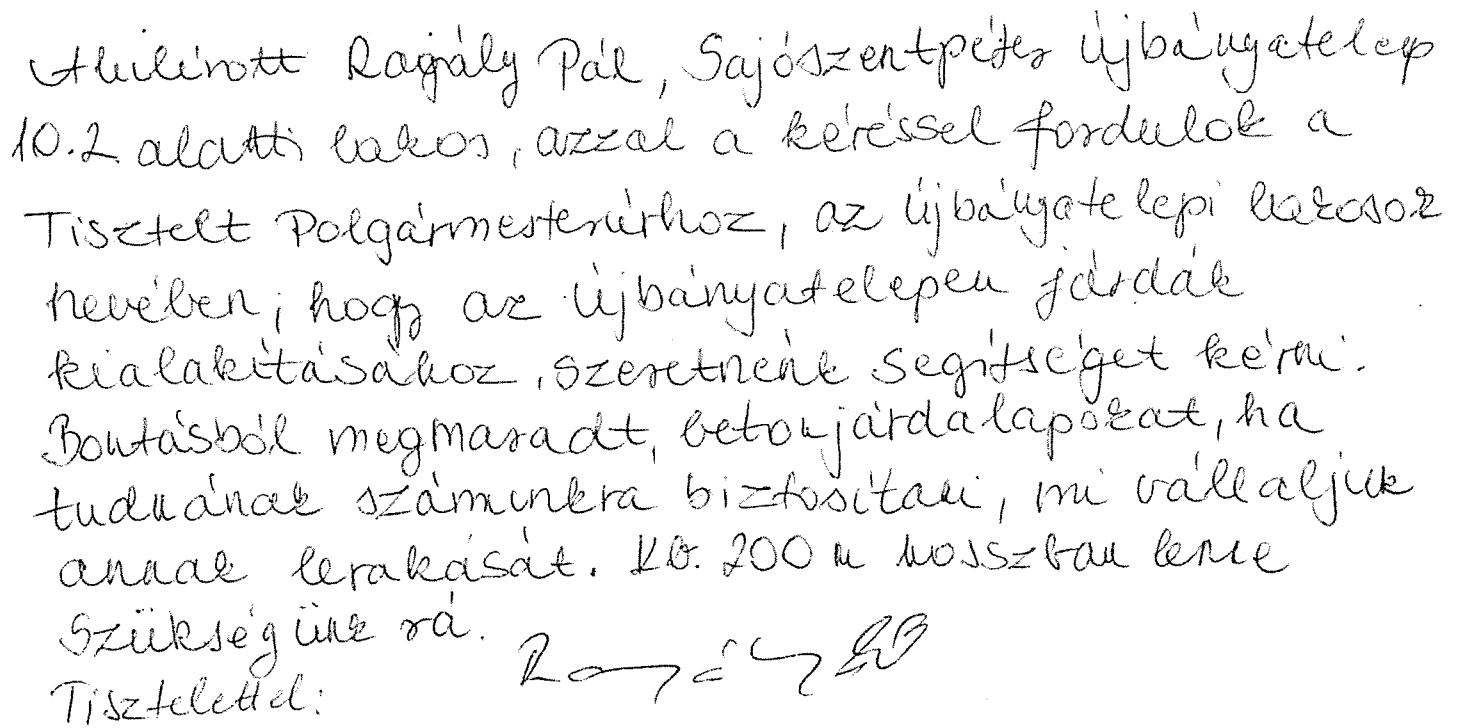 Alulírott Ragály Pál, Sajószentpéter Újbányatelep
10.2 alatti lakos, azzal a kéréssel fordulok a
Tisztelt Polgármesterúrhoz, az Újbányatelepi lakosok
nevében, hogy az Újbányatelepen járdák
kialakításához, szeretnénk segítséget kérni.
Bontásból megmaradt, betonjárdalapokat, ha
tudnának számunkra biztosítani, mi vállaljuk
annak lerakását. Kb. 200 m hosszban lenne
Szükségünk rá.
Tisztelettel: Ragály